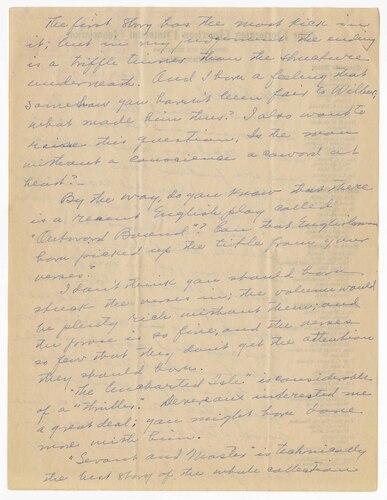 The first story has the most kick in
it; but in my judgment the ending
is a triffle thinner than the structure
underneath. And I have a feeling that
somehow you haven't been fair to Wilbur,
what made him thus? I also want to
raise this question, Is the man
without a conscience a coward at
heart?
By the way, do you know that there
is a recent English play called
"Outward Bound"? Can that Englishman
have picked up the title from your
verses?
I don't think you should have
stuck the verses in; the volume would
be plenty rich without them; and
the prose is so fine, and the verses
so few that they don't get the attention
they should have.
"The Uncharted isle" is considerable
of a "thriller". Devereaux interested me
a great deal; you might have done
more with him.
"Servant and Master" is technically
the best story of the whole collection